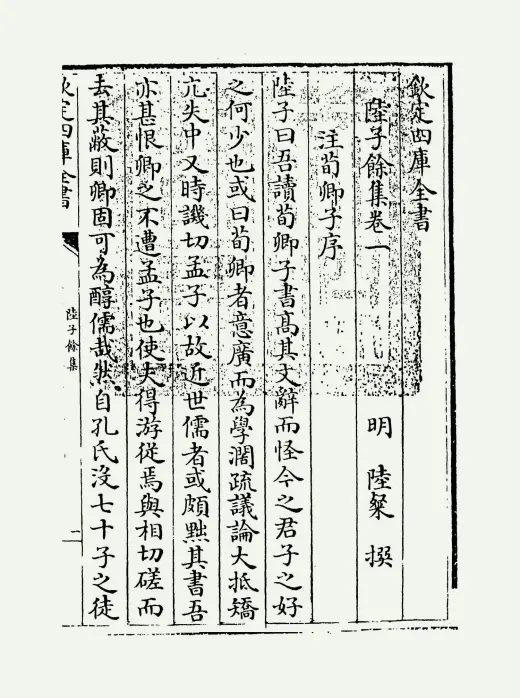 欽定四庫全書
陸子餘集卷一
明 陸粲 撰
注荀卿子序
陸子曰吾讀荀卿子書髙其文辭而怪今之君子之好
之何少也或曰荀卿者意廣而為學濶疏議論大抵矯
亢失中又時譏切孟子以故近世儒者或頗黜其書吾
亦甚恨卿之不遭孟子也使夫得游從焉與相切磋而
去其蔽則卿固可為醇儒哉然自孔氏沒七十子之徒
欽定四庫全書
陸子餘集
一